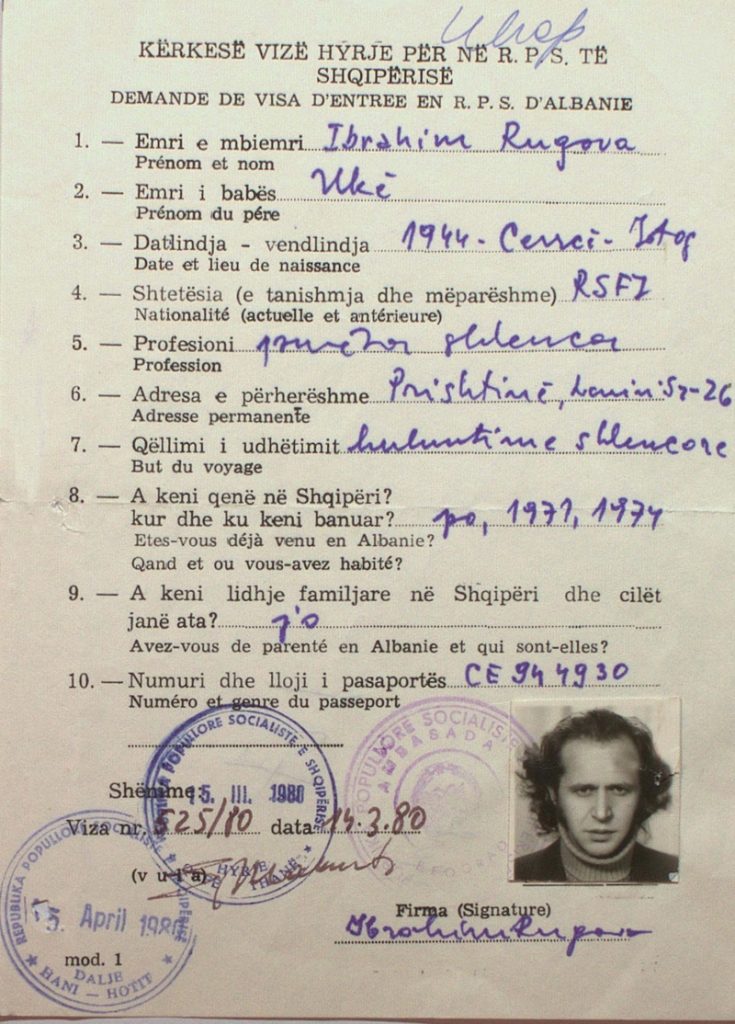 KËRKESË VIZË HYRJE PËR NË R. P. S. TË
SHQIPËRISË
DEMANDE DE VISA D'ENTREE EN R. P. S. D'ALBANIE
1. — Emri e mbiemri Ibrahim Rugova
Prénom et nom
2. — Emri i babës Ukë
Prénom du pére
3. — Datlindja - vendlindja 1944 - Cerrcë - Istog
Date et lieu de naissance
4. — Shtetësia (e tanishmja dhe mëparëshme) RSFJ
Nationalité (actuelle et antérieure)
5. — Profesioni punëtor shkencor
Profession
6. — Adresa e përherëshme Prishtinë, Lenini 52-26
Adresse permanente
7. — Qëllimi i udhëtimit hulumtime shkencore
But du voyage
8. — A keni qenë në Shqipëri?
kur dhe ku keni banuar? po, 1971, 1974
Etes-vous déjà venu en Albanie?
Qand et ou vous-avez habité?
9. — A keni lidhje familjare në Shqipëri dhe cilët
janë ata? jo
Avez-vous de parenté en Albanie et qui sont-elles?
10. — Numuri dhe lloji i pasaportës CE 944930
Numéro et genre du passeport
REPUBLIKA POPULLORE SOCIALISTE E SHQIPËRISE
15. III. 1980
HYRJE
POPULLORE SOCIALISTE
AMBASADA
BEOGRAD
Shënime:
Viza nr. 525/80 data 14.3.80
(v u l a)
REPUBLIKA POPULLORE SOCIALISTE E SHQIPËRISE
April 1980
DALJE
HANI — HOTIT
Firma (Signature)
Ibrahim Rugova
mod. 1